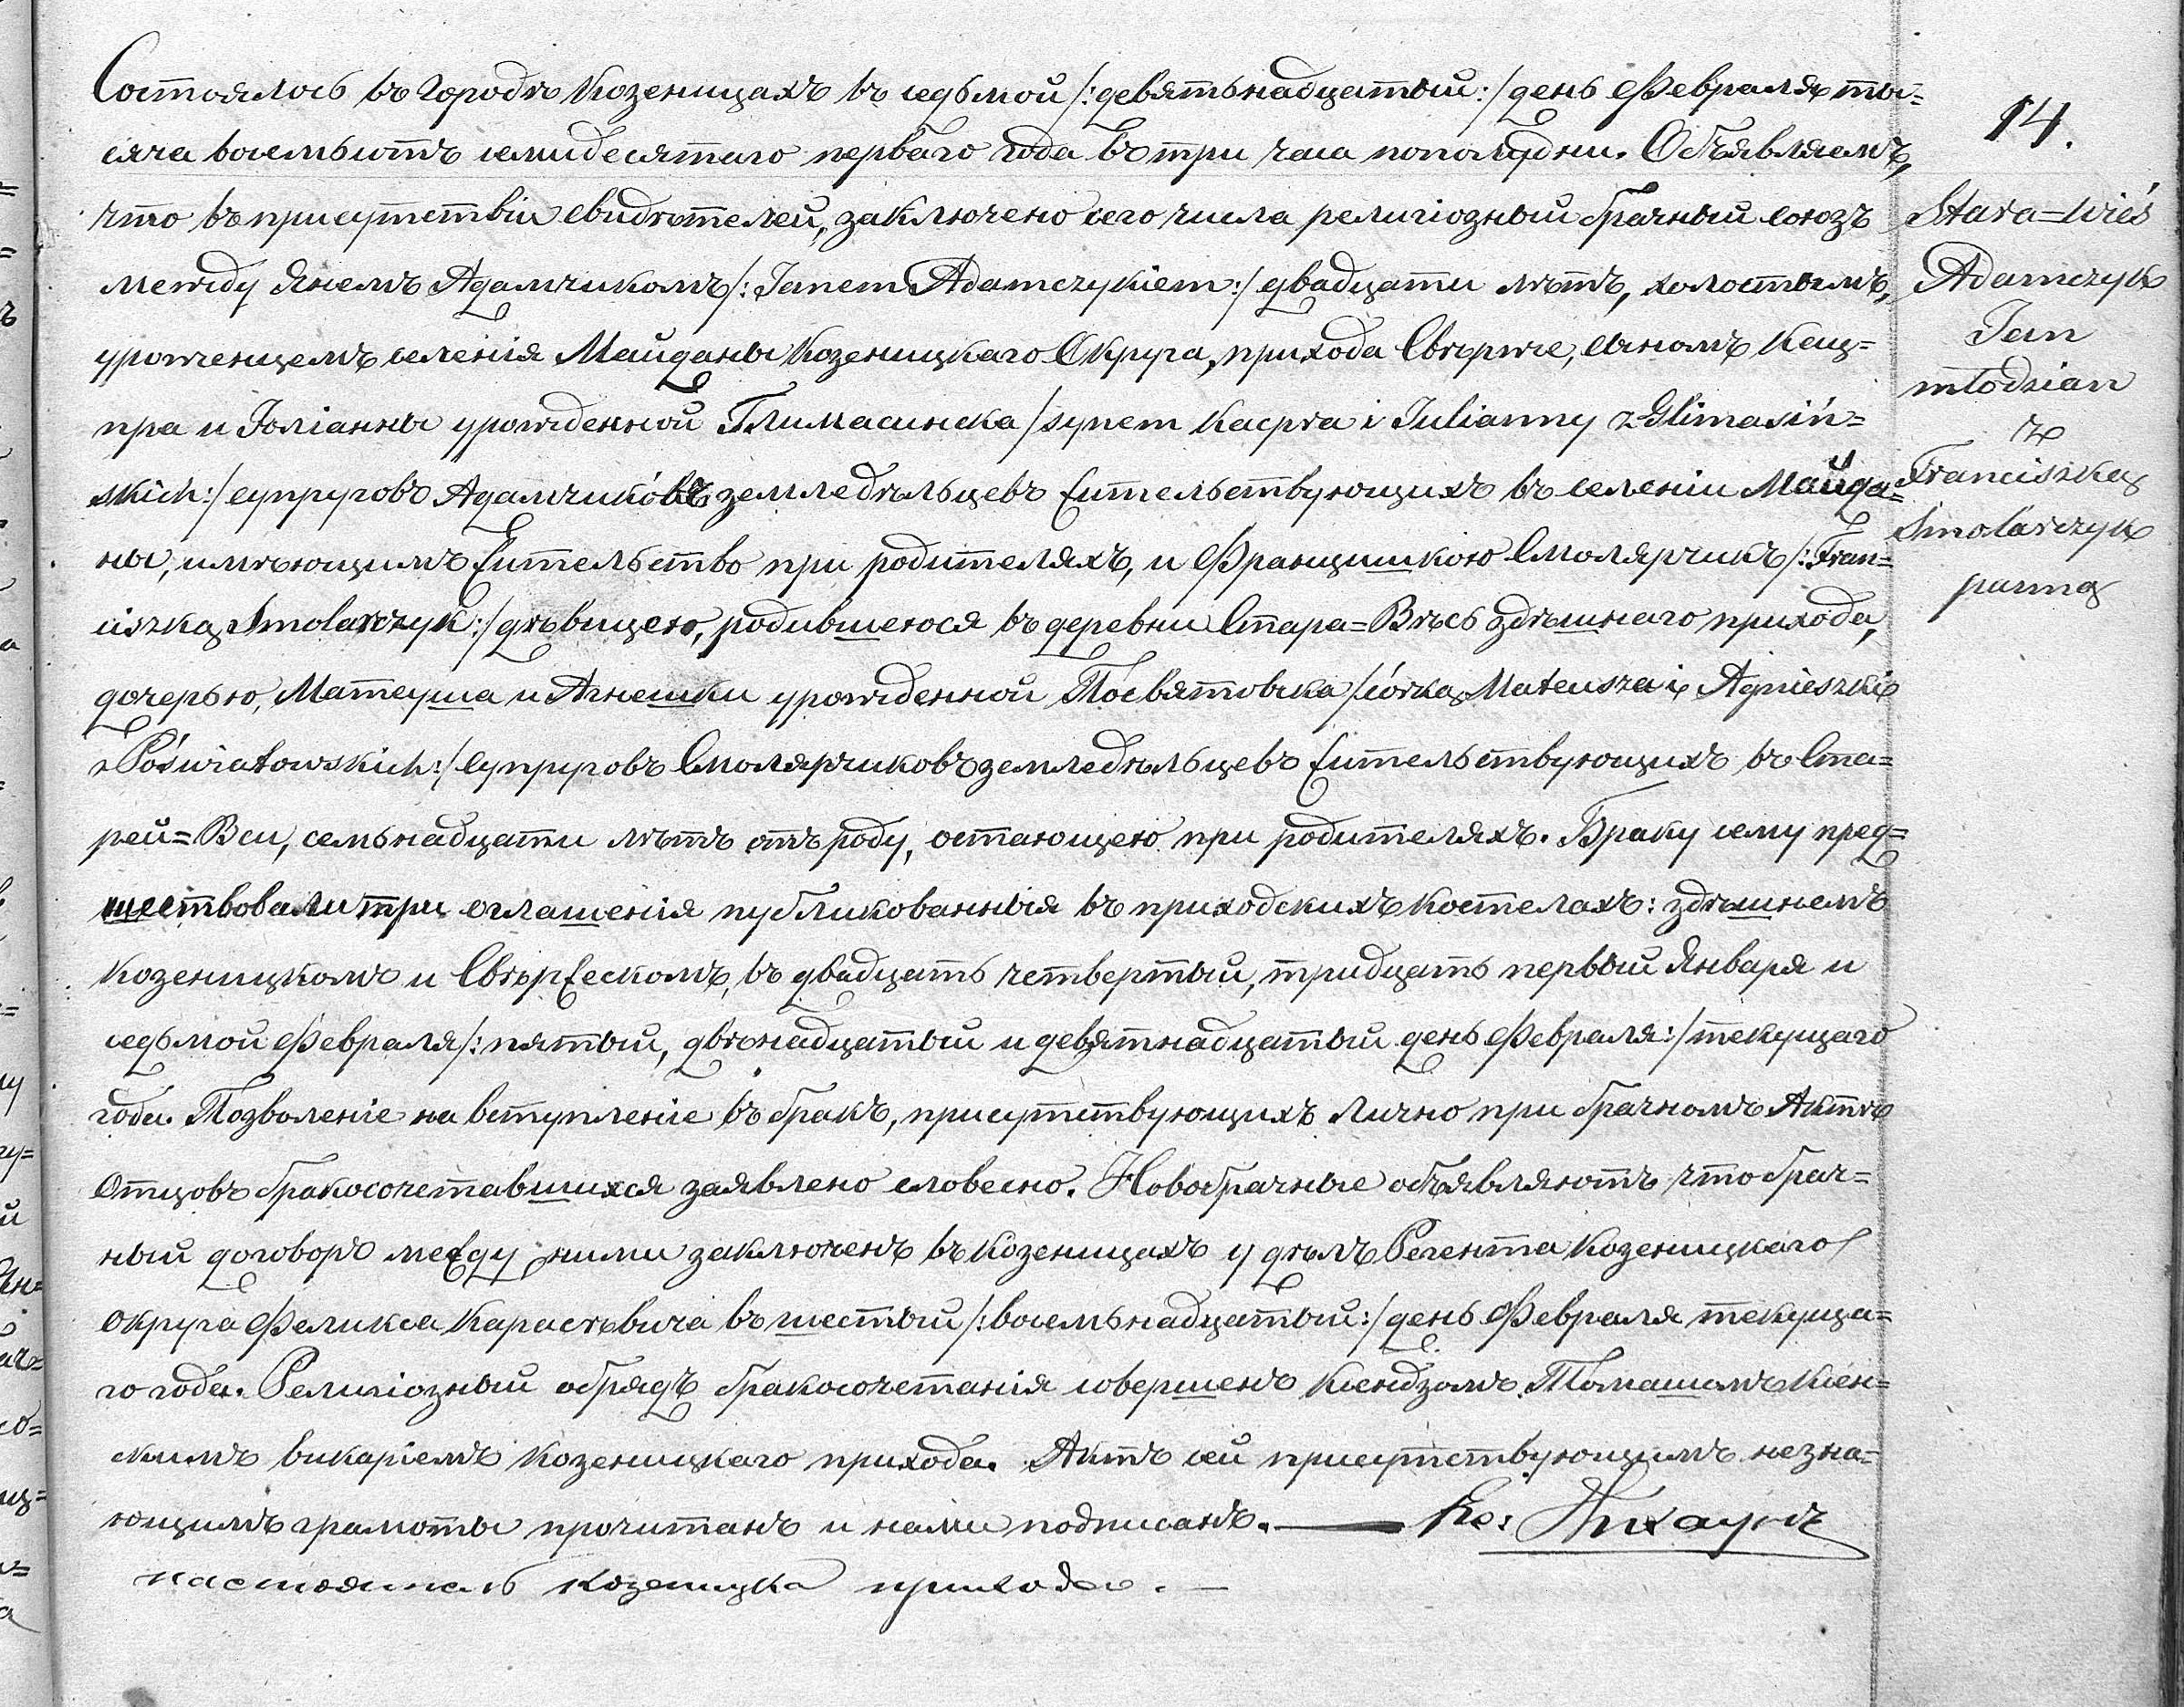 Состоялось въ городѣ Козеницахъ въ седьмой /: девятьнадцатый :/ день Февраля ты=
сяча восемьсотъ семидесятаго перваго года въ три часа пополудни. Объявляемъ,
что въ присутствіи свидѣтелей, заключено сего числа религіозный брачный союзъ
между Янемъ Адамчикомъ /: Janem Adamczykiem :/ двадцати лѣтъ, холостымъ,
уроженцемъ селенія Майданы Козеницкаго Округа, прихода Свѣрже, сыномъ Кац=
пра и Юліанны урожденной Глимасинска / synem Kacpra i Julianny z Glimasiń=
skich :/ супруговъ Адамчиковъ земледѣльцевъ жительствующихъ въ селеніи Майда=
ны, имѣющимъ жительство при родителяхъ, и Францишкою Смолярчикъ /: Fran=
ciszką Smolarczyk :/ дѣвицею, родившеюся въ деревни Стара=Вѣсь здѣшнаго прихода,
дочерью, Матеуша и Агнешки урожденной Посвятовска / córką Mateusza i Agnieszki
z Poświatowskich :/ супруговъ Смолярчиковъ земледѣльцевъ жительствующихъ въ Ста=
рей=Вси, семьнадцати лѣтъ отъ роду, остающею при родителяхъ. Браку сему пред=
шествовали три оглашенія публикованныя въ приходскихъ костелахъ: здѣшнемъ
Козеницкомъ и Свѣржескомъ, въ двадцать четвертый, тридцать первый Января и
седьмой Февраля /: пятый, двѣнадцатый и девятнадцатый день Февраля :/ текущаго
года. Позволеніе на вступленіе въ бракъ, присутствующихъ лично при брачномъ Актѣ
Отцовъ бракосочетавшихся заявлено словесно. Новобрачные объявляютъ что брач=
ный договоръ между ними заключенъ въ Козеницахъ у дѣлъ Регента Козеницкаго
Округа Феликса Карасѣвича въ шестый /: восемьнадцатый :/ день Февраля текуща=
го года. Религіозный обрядъ бракосочетанія совершенъ Ксендзомъ Томашомъ
викаріемъ Козеницкаго прихода. Актъ сей присутствующимъ незна=
ющимъ грамоты прочитанъ и нами подписанъ. — Кс:
настоятель козеницка прихода. —
14.
Stara=wieś
Adamczyk
Jan
młodzian
z
Franciszką
Smolarczyk
panną